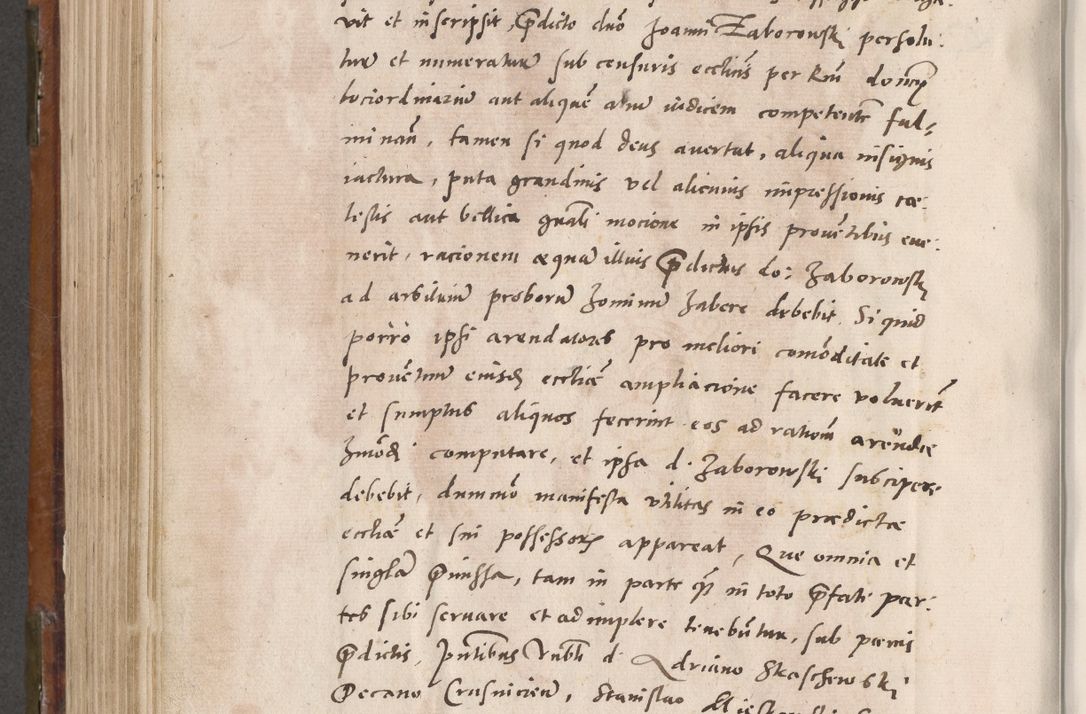 vit et inscripsit, p̃dicto dño Joanni Zaborowski persolu:
tur et numeratur sub censuris ecclīis per Rm̃
lociordinarium aut aliquẽ aliũ iudicem competentẽ ful:
minañ, tamen si quod deus avertat, aliqua insignis
iactura, puta grandinis vel alicuius impressionis cæ:
lestis aut bellica gñali mocione in ipsis provẽtibus eve:
nerit, racionem æquã illius p̃dictus do: Zaborowski
ad arbitrium proborũ hominum habere debebit. Si quid
porro ipsi arendatores pro meliori comõditate et
provẽtuum eiusd ecctiæ ampliacione facere voluerĩt
et sumptus aliquos fecerint eos ad rationẽ arendæ
hmõdi computare, et ipsa d. Zaborowski suscipere
debebit, dummõ manifesta utilitas in eo prædictæ
ecctiæ et sui possessoris appareat, Que omnia et
singla p̃missa, tam in parte q̃ in toto p̃fate par:
tes sibi servare et adimplere tenebũtur, sub pœnis
p̃dictis, p̃ñtibus Vñbli d. Adriano Skaschewski
Decano Crusvicieñ, Stanislao